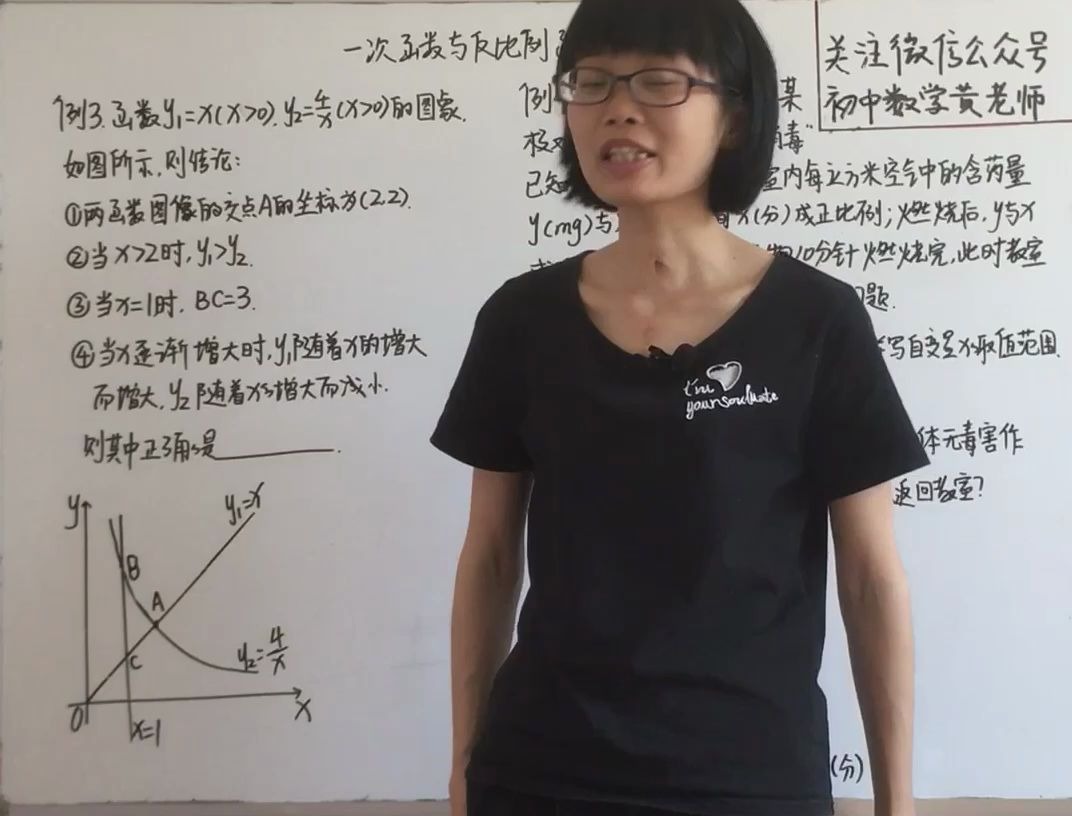 一次函数与反比例
关注微信公众号
初中数学黄老师
例3.函数y₁=x(x>0).y₂=4/x(x>0)的图象.
如图所示,则结论:
①两函数图像的交点A的坐标为(2,2).
②当x>2时,y₁>y₂.
③当x=1时,BC=3.
④当x逐渐增大时,y₁随着x的增大
而增大,y₂随着x的增大而减小.
则其中正确的是________.
y
y₁=x
B
A
C
y₂=4/x
O
x=1
x
例
某
校对
消毒"
已知
室内每立方米空气中的含药量
y(mg)与
x(分)成正比例;燃烧后,y与x
10分钟燃烧完,此时教室
题.
写自变量x取值范围.
体无毒害作
返回教室?
(分)
I'm
your soulmate